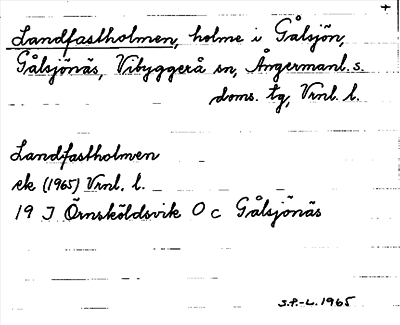 Landfastholmen, holme i Gålsjön,
Gålsjönäs, Vibyggerå sn, Ångermanl. s.
doms. tg, Vrnl. l.
Landfastholmen
ek (1965) Vrnl. l.
19 J Örnsköldsvik 0 c Gålsjönäs
S.P.-L. 1965